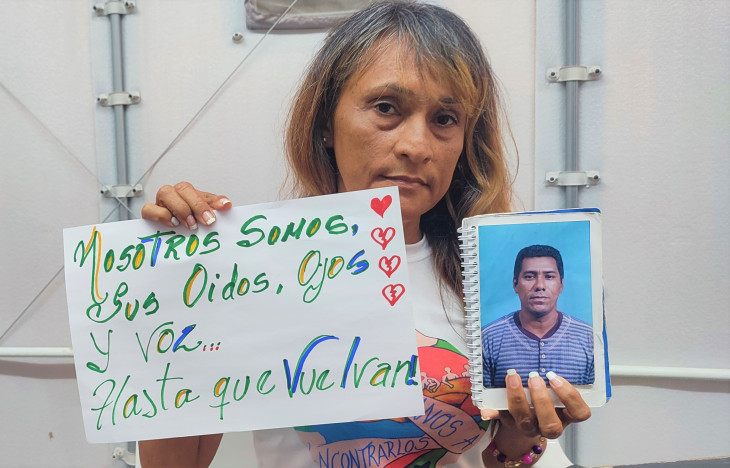 Nosotros Somos,
Sus Oidos, Ojos
y voz...
Hasta que Vuelvan!
NOS A
ENCONTRARLOS